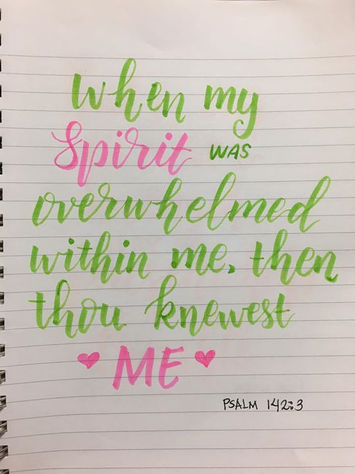 when my
Spirit WAS
overwhelmed
within me, then
thou knewest
♥ ME ♥
PSALM 142:3